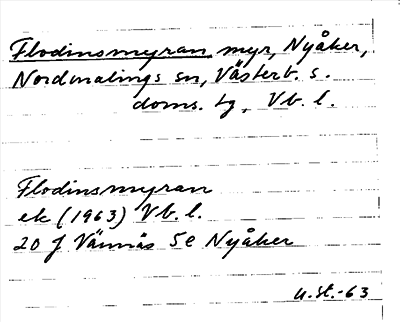 Flodinsmyran, myr, Nyåker,
Nordmalings sn, Västerb. s.
doms. tg, Vb. l.
Flodinsmyran
ek (1963) Vb. l.
20 J Vännäs 5e Nyåker
u.st.-63